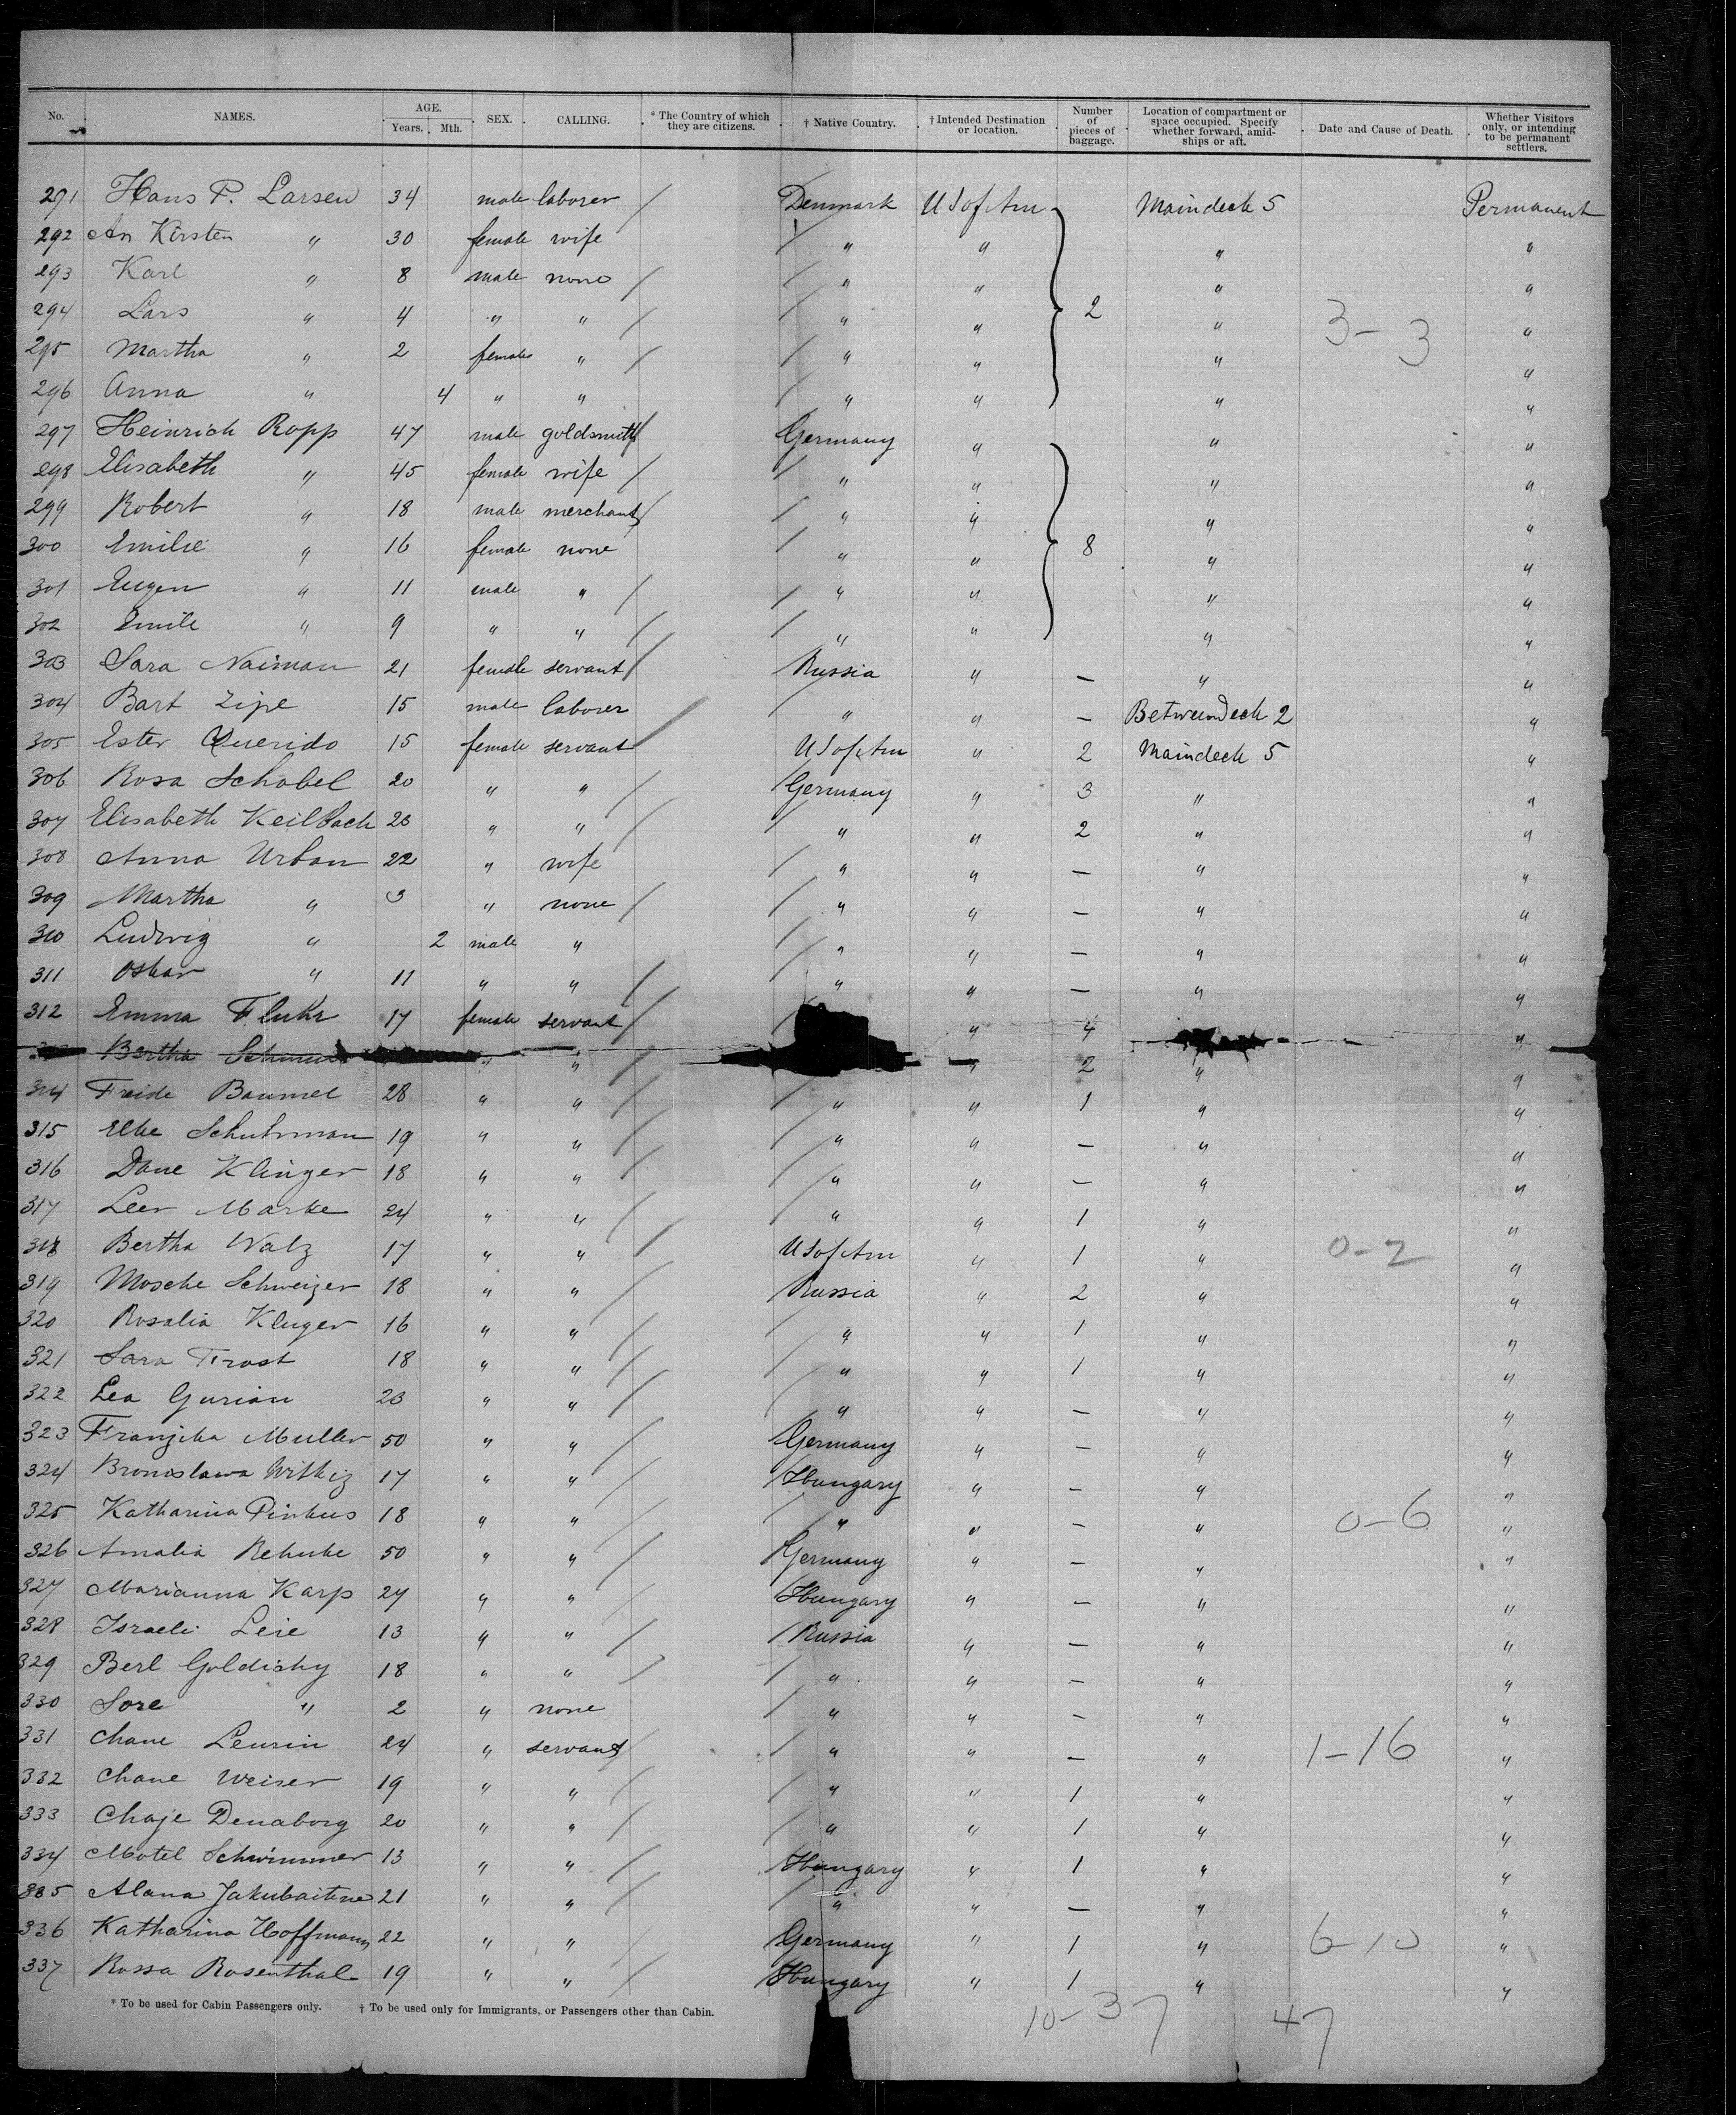 No. NAMES. AGE. Years. Mth. SEX. CALLING. * The Country of which they are citizens. † Native Country. † Intended Destination or location. Number of pieces of baggage. Location of compartment or space occupied. Specify whether forward, amidships or aft. Date and Cause of Death. Whether Visitors only, or intending to be permanent settlers.
291 Hans P. Larsen 34 male laborer / Denmark U S of Am Maindeck 5 Permanent
292 An Kirsten " 30 female wife / " " " "
293 Karl " 8 male none / / " " " "
294 Lars " 4 " " / / " " 2 " 3-3 "
295 Martha " 2 female " / / " " " "
296 Anna " 4 " " / " " " "
297 Heinrich Ropp 47 male goldsmith / Germany " " "
298 Elisabeth " 45 female wife / / " " " "
299 Robert " 18 male merchant / / " " " "
300 Emilie " 16 female none / " " 8 " "
301 Eugen " 11 male " / / " " " "
302 Emile " 9 " " / / " " " "
303 Sara Naiman 21 female servant / Russia " — " "
304 Bart Zipe 15 male laborer / " " — Betweendeck 2 "
305 Ester Querido 15 female servant / U S of Am " 2 Maindeck 5 "
306 Rosa Schobel 20 " " / Germany " 3 " "
307 Elisabeth Keilbach 23 " " / / " " 2 " "
308 Anna Urban 22 " wife / " " — " "
309 Martha " 3 " none / / " " — " "
310 Ludwig " 2 male " / " " — " "
311 Oskar " 11 " " / / " " — " "
312 Emma Fluhr 17 female servant / / " 4 "
Bertha " " / " 2 " "
314 Freide Baumel 28 " " / / " " 1 " "
315 Elke Schuhman 19 " " / / " " — " "
316 Dane Klinger 18 " " / / " " — " "
317 Leer Marke 24 " " / / " " 1 " "
318 Bertha Walz 17 " " / U S of Am " 1 " 0-2 "
319 Mosche Schweizer 18 " " / Russia " 2 " "
320 Rosalia Kluger 16 " " / / " " 1 " "
321 Sara Trost 18 " " / / " " 1 " "
322 Lea Gurian 23 " " / / " " — " "
323 Franzika Muller 50 " " / Germany " — " "
324 Bronislawa Witkiz 17 " " / Hungary " — " "
325 Katharina Pinkus 18 " " / / " " — " 0-6 "
326 Amalia Rehnke 50 " " / Germany " — " "
327 Marianna Karp 24 " " / Hungary " — " "
328 Israeli Leie 13 " " / / Russia " — " "
329 Berl Goldisky 18 " " / / " " — " "
330 Sore " 2 " none / " " — " "
331 Chane Leurin 24 " servant / / " " — " 1-16 "
332 Chane Weiser 19 " " / / " " 1 " "
333 Chaje Denaborg 20 " " / / " " 1 " "
334 Motel Schwimmer 13 " " / Hungary " 1 " "
335 Alana Jakubaitine 21 " " / / " " — " "
336 Katharina Hoffmann 22 " " / Germany " 1 " 6-10 "
337 Rossa Rosenthal 19 " " / Hungary " 1 " "
* To be used for Cabin Passengers only. † To be used only for Immigrants, or Passengers other than Cabin.
10-37 47